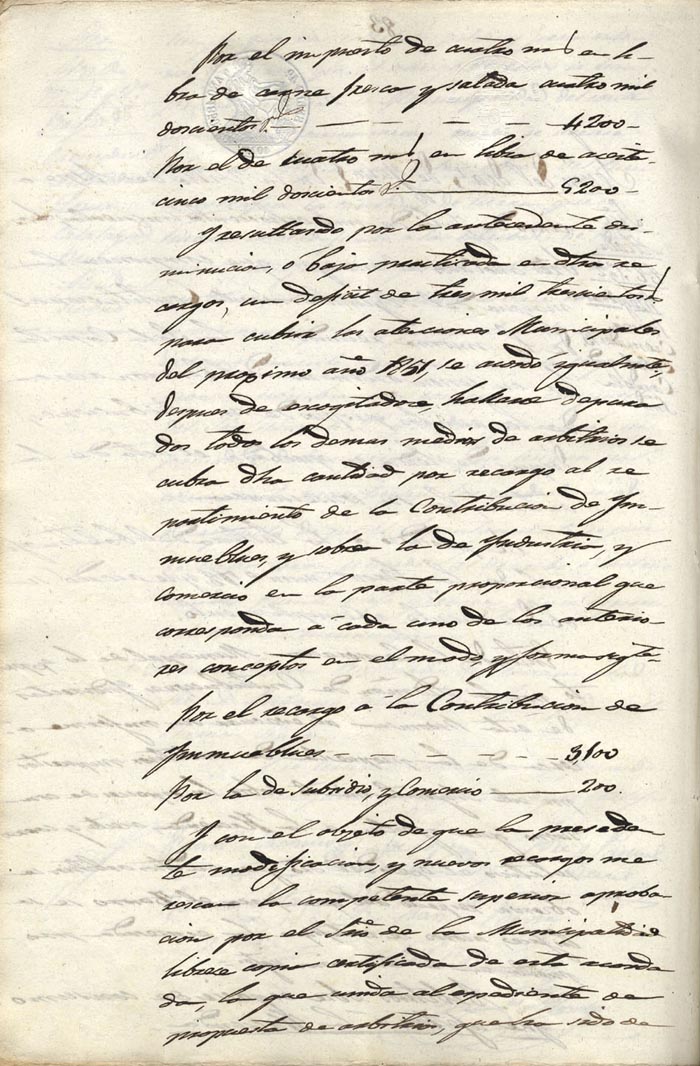 Por el impuesto de cuatro ms en li-
bra de carne fresca y salada cuatro mil
doscientos rs. — — — — — 4200-
Por el de cuatro ms en libra de aceite
cinco mil doscientos rs. ——— 5200-
Y resultando por la antecedente di-
minucion, ó baja practicada en dhos re
cargos, un deficit de tres mil trescientos rs
para cubrir las atenciones Municipales
del proximo año 1851, se acordó ygualmte,
despues de excogitados, hallarse depura
dos todos los demas medios de arbitrios se
cubra dha cantidad por recargo al re
partimiento de la Contribucion de Yn-
muebles, y sobre la de Yndustria, y
comercio en la parte proporcional que
corresponda á cada uno de los anterio-
res conceptos en el modo, y forma sigte.
Por el recargo á la Contribucion de
Ynmuebles — — — — — 3,100
Por la de Subsidio, y Comercio ——— 200.
Y con el objeto de que la preseden
te modificacion, y nuevos recargos me
rescan la competente superior aproba
cion por el Srio de la Municipalidad
librese copia certificada de esta acorda
da, la que unida al expediente de
propuesta de arbitrios, que ha sido de